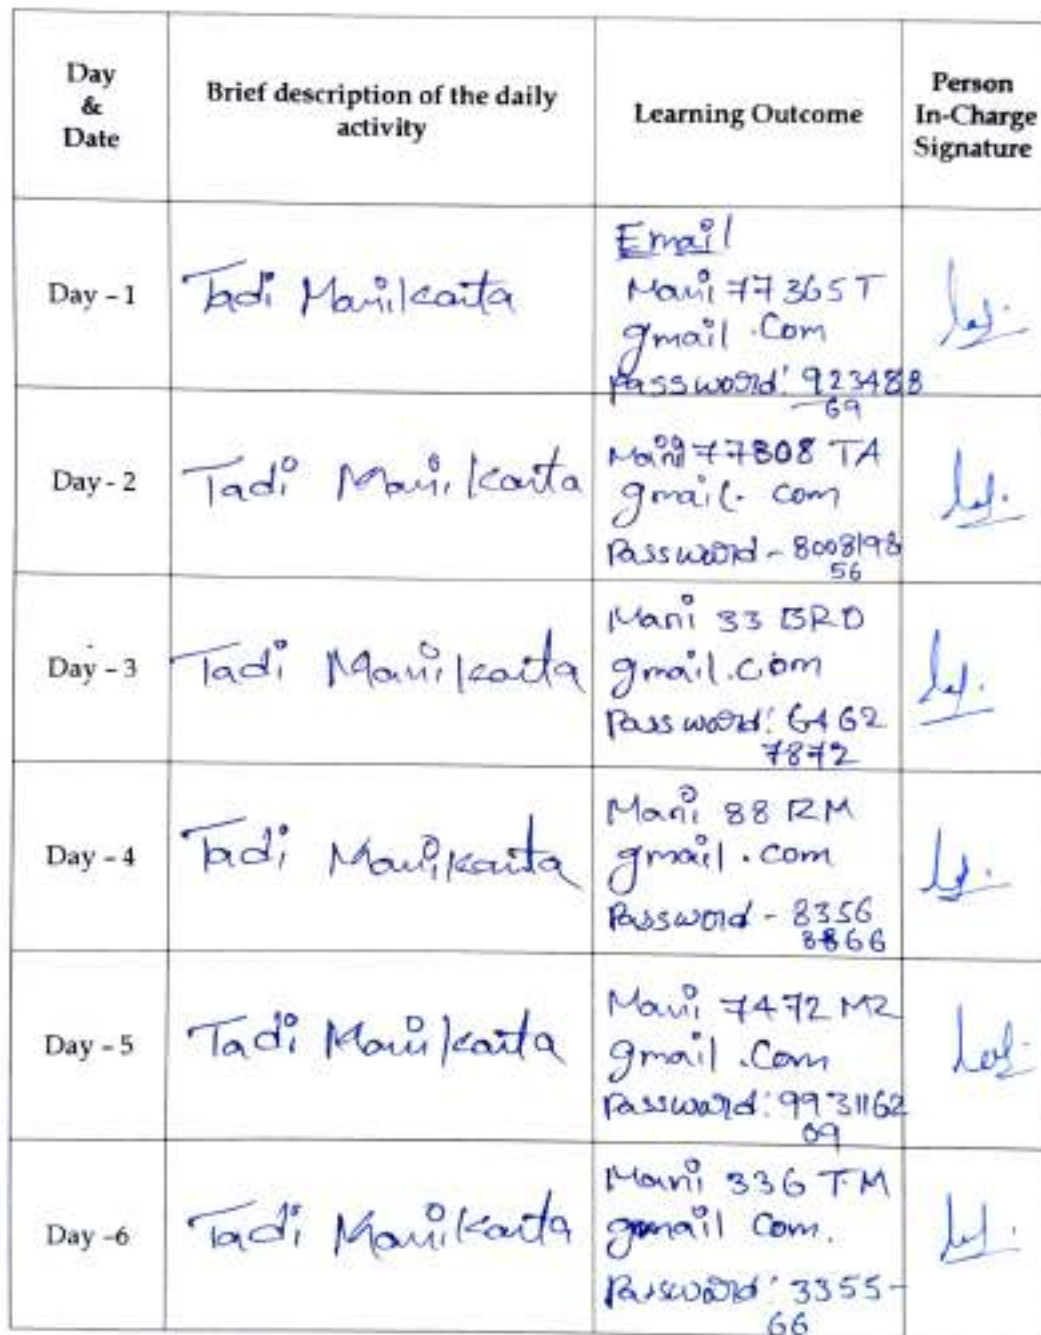 Day
&
Date
Brief description of the daily
activity
Learning Outcome
Person
In-Charge
Signature
Day - 1
Tadi Manikanta
Email
Mani 77365T
gmail .Com
Password: 923488
69
Day - 2
Tadi Manikanta
Mani 77808 TA
gmail. com
Password - 8008198
56
Day - 3
Tadi Manikanta
Mani 33 BRD
gmail.com
Password: 6462
7872
Day - 4
Tadi Manikanta
Mani 88 RM
gmail .com
Password - 8356
3866
Day - 5
Tadi Manikanta
Mani 7472 MR
gmail .Com
Password: 9931162
09
Day -6
Tadi Manikanta
Mani 336 TM
gmail Com.
Password: 3355-
66